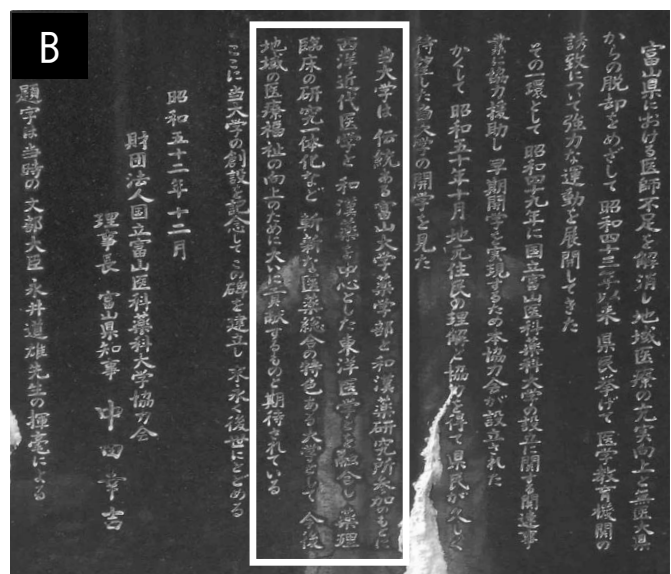 B
富山県における医師不足を解消し地域医療の充実向上と無医大県
からの脱却をめざして 昭和四十三年以来 県民挙げて 医学教育機関の
誘致について強力な運動を展開してきた
その一環として 昭和四十九年に 国立富山医科薬科大学の設立に関する関連事
業に協力援助し 早期開学を実現するため本協力会が設立された
かくして 昭和五十年十月 地元住民の理解と協力を得て 県民が久しく
待望した当大学の開学を見た
当大学は 伝統ある富山大学薬学部と和漢薬研究所参加のもとに
西洋近代医学と 和漢薬を中心とした東洋医学とを融合し 薬理
臨床の研究一体化など 斬新な医薬総合の特色ある大学として 今後
地域の医療福祉の向上のために大いに貢献するものと期待されている
ここに当大学の創設を記念して この碑を建立し 永く後世にとどめる
昭和五十二年十二月
財団法人国立富山医科薬科大学協力会
理事長 富山県知事 中田幸吉
題字は当時の文部大臣 永井道雄先生の揮毫による